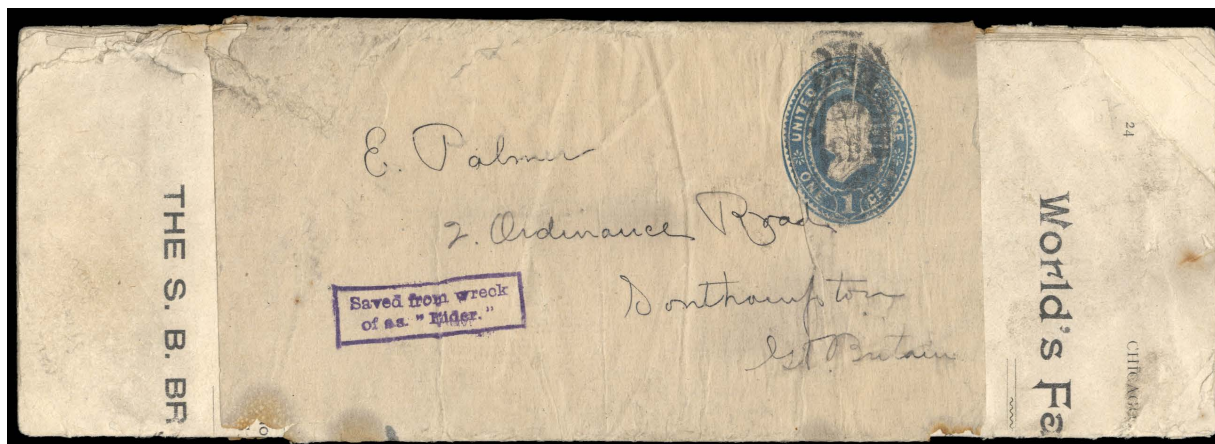 E. Palmer
2. Ordinance Road
Southampton
Gt. Britain
Saved from wreck
of ss. "Eider."
UNITED STATES POSTAGE
ONE CENT
1
THE S. B. BR
World's Fa
24
CHICAGO